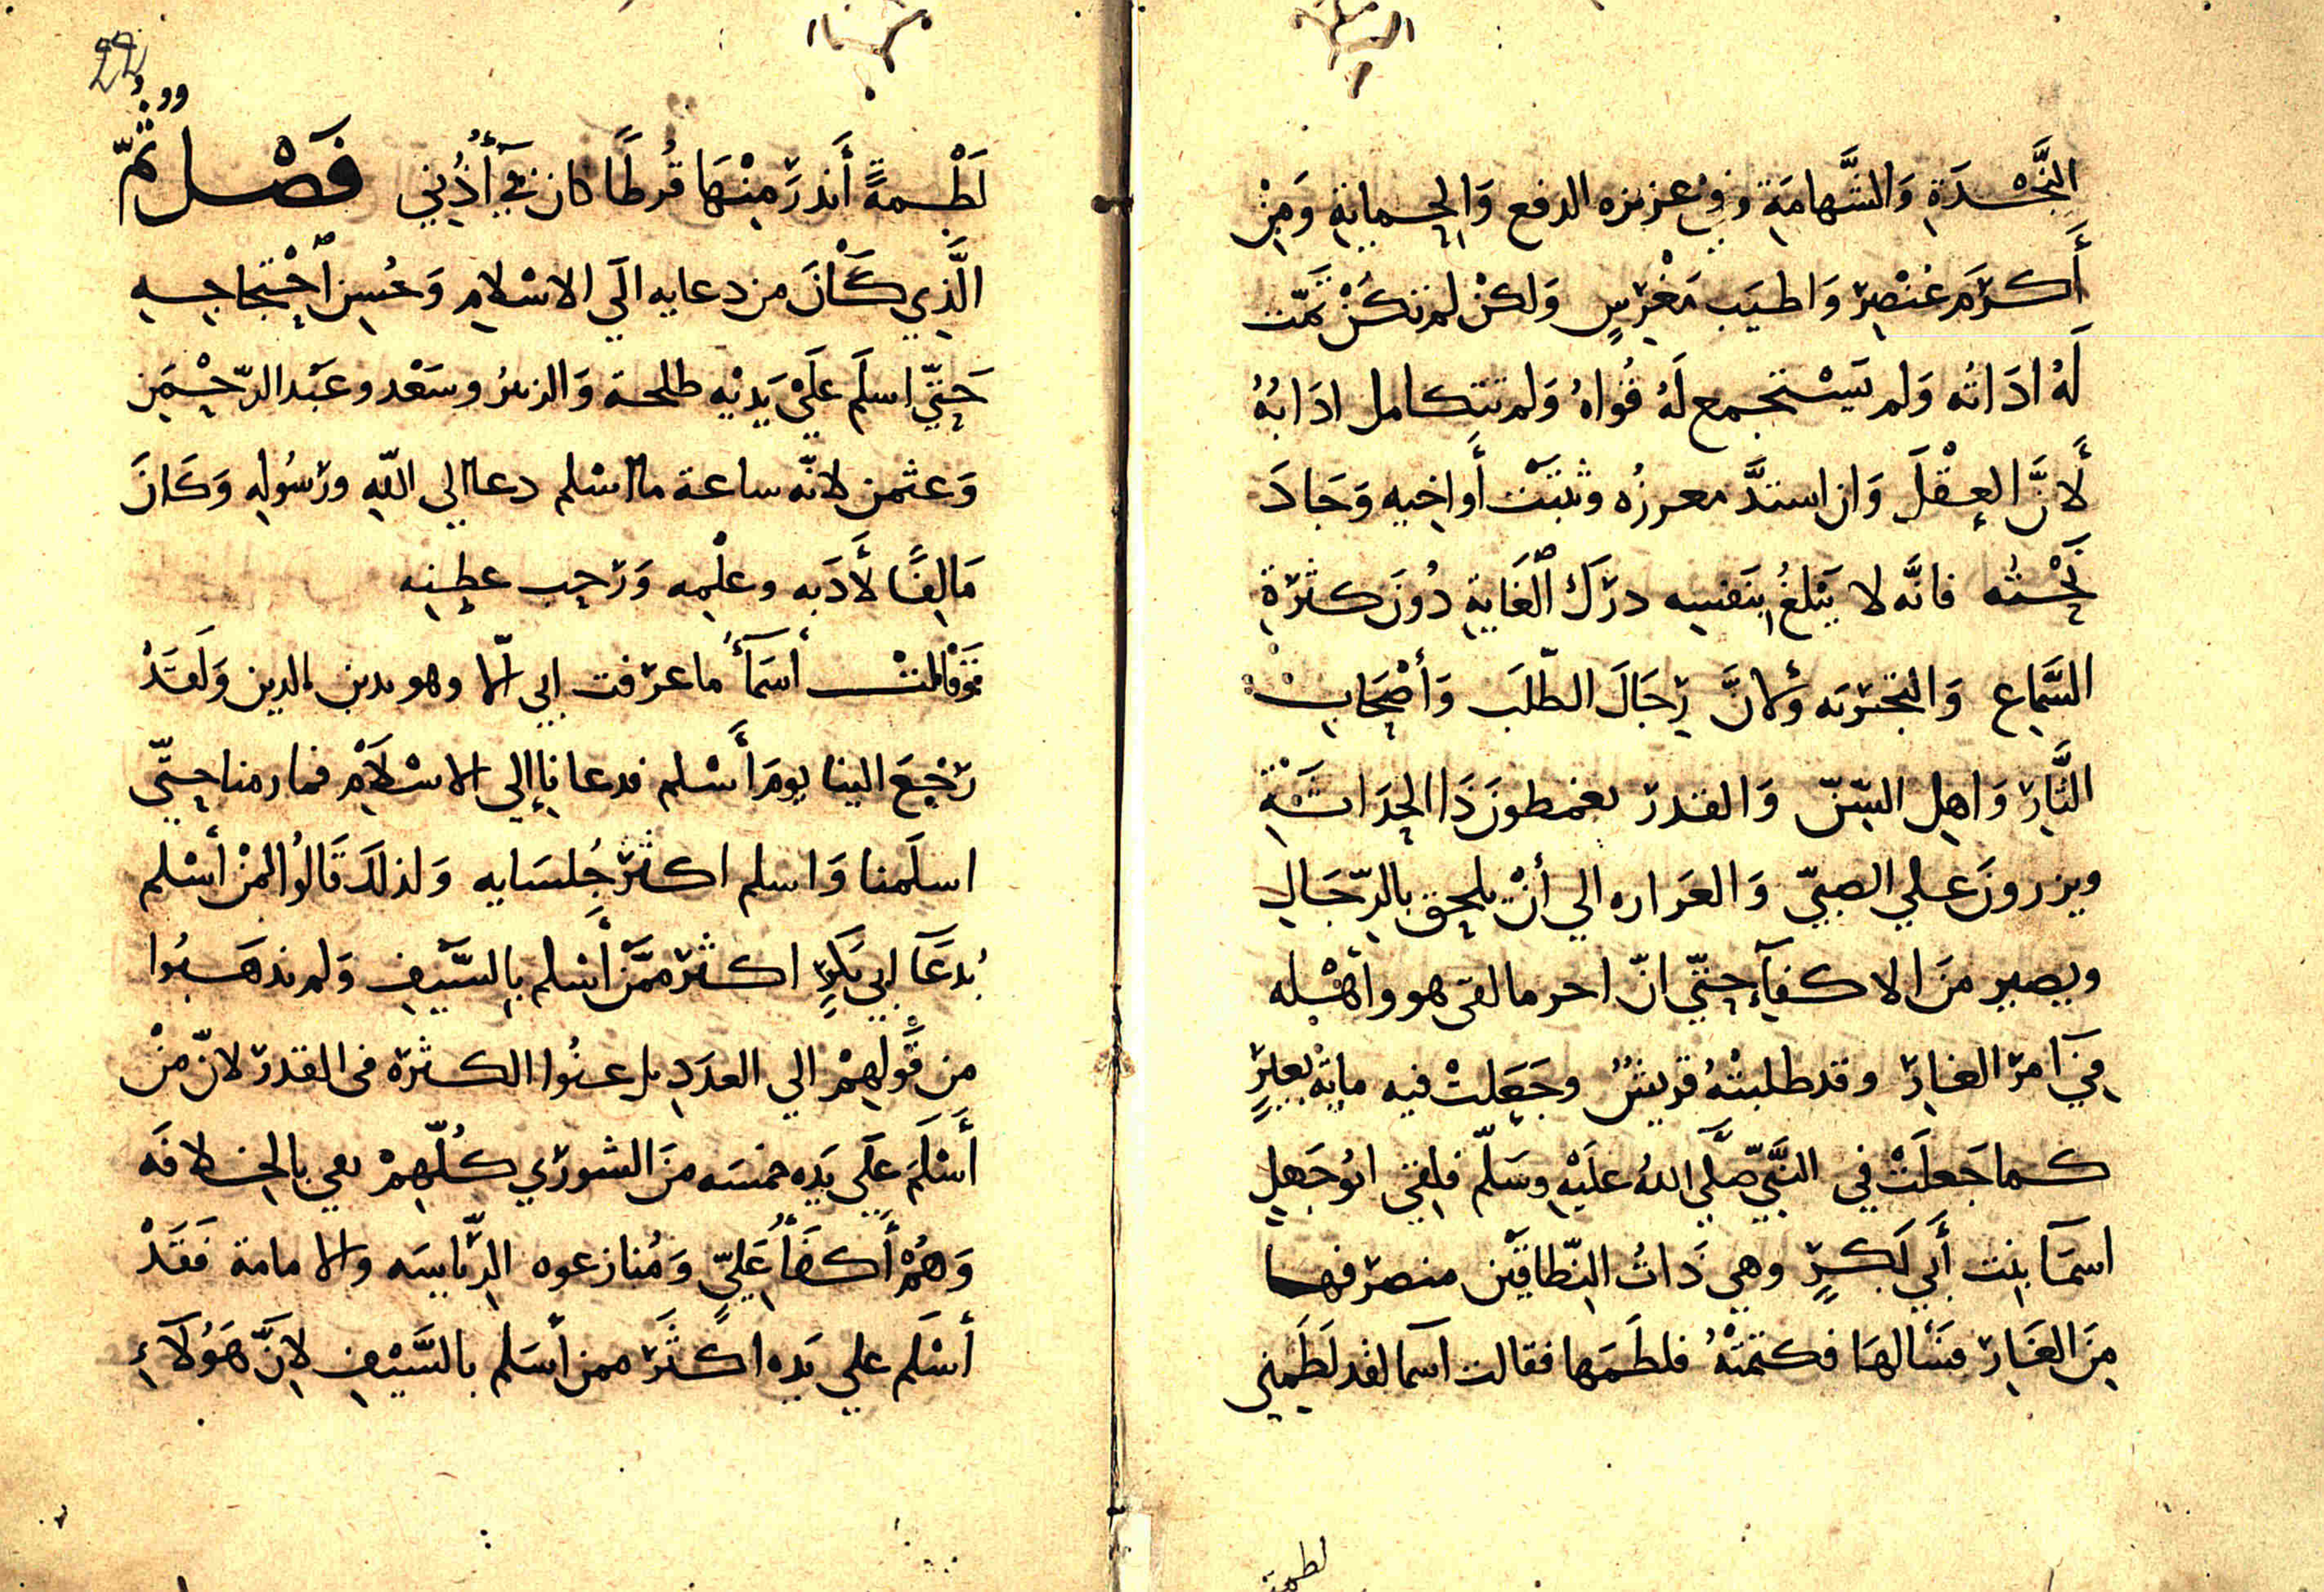 النَّجْدَةِ وَالشَّهامَةِ وفي عزيزه الدفع وَالحماية وَمِنْ
أَكرَمَ عُنْصِرٍ وَاطيَب مَغْرِسٍ وَلكنْ لم تكنْ تَمّت
لَهُ ادَاتُه وَلم يَسْتجمع لَهُ قُوَاهُ وَلم تتكامل ادَابُهُ
لأَنَّ العِقْلَ وَان اشتدَّ مغرزُه وثبتَتْ أَواخيه وَجَادَ
نَحْتُه فانَّه لا يَبْلغُ بنَفسِه درَكَ ٱلغَايةِ دُونَ كثرَةِ
السَّماع وَالتجربَه وَلانَّ رِجَالَ الطّلَب وَأصْحَابِ
الثَّارِ وَاهِل السِّنّ وَالقدر يغمطونَ ذَا الحِدَاثَةِ
ويزرونَ علي الصبيّ وَالغَراره الي أنْ يلحق بالرّجَالِ
ويصير منَ الاكفآءِ حتّي انّ اخر ما لقى هو واهْله
فِي آمرِ الغارِ وقد طلبتْهُ قريشٌ وجَعَلتْ فيه مايةَ بعيرٍ
كما جَعلَتْ في النَّبيّ صَلَّي اللهُ علَيْهِ وسَلّم فلِقي ابُو جَهلٍ
اسمَا بنِت أَبي بَكرٍ وهي ذَاتُ النِّطاقَيْن منصرَفها
مِنَ الغَارِ فسَألهَا فكتمَتْهُ فلطَمَها فقالت آسما لقد لَطَمِني
لطمة
22
لَطْمةً أَندرَ مِنْهَا قُرطًا كان في أُذُني فَصْل ثُمّ
الَّذِي كَانَ من دعايه الَي الاسْلامِ وَحُسِن ٱحْتجاجِهِ
حَتّي اسلَم علَي يَدَيْهِ طلحة وَالزبيرُ وسَعْد وعَبْد الرّحْمَنِ
وَعثمن لانّه ساعة ما اسْلم دعا الى اللّهِ ورَسُولِهِ وَكَانَ
مَالِفًا لأَدَبه وعلْمِه وَرَحِب عطِنِه
فَقَالتْ أسمَآءُ ما عرَفت ابي الّا وهو يدين بالدين وَلَقَدْ
رَجْعَ الينا يومَ أَسْلم فدعانا إلي الاسْلَامِ فما رمنا حتّي
اسلَمنا وَاسلم اكثَر جُلسَايه وَلذلكَ قَالُوا لمَنْ أسْلم
بُدعَآ ابي بَكرٍ اكثَر ممَّن أَسْلم بالسَّيْفِ وَلم يذهَبُوا
من قَوْلهِمْ الي العدَدِ بل عنُوا الكثرَة فى القدر لانّ منْ
أَسْلَمَ علَي يَدِه خمسَه منَ الشورَي كُلّهمْ يفي بالخلافَه
وَهُمْ أَكفَآءُ عَليّ وَمُنازعوه الرِّيَاسَه والامامة فَقَدْ
أسْلَم علي يَده اكثَرَ ممن أسَلم بالسَّيْفِ لانَّ هَؤُلَآءِ